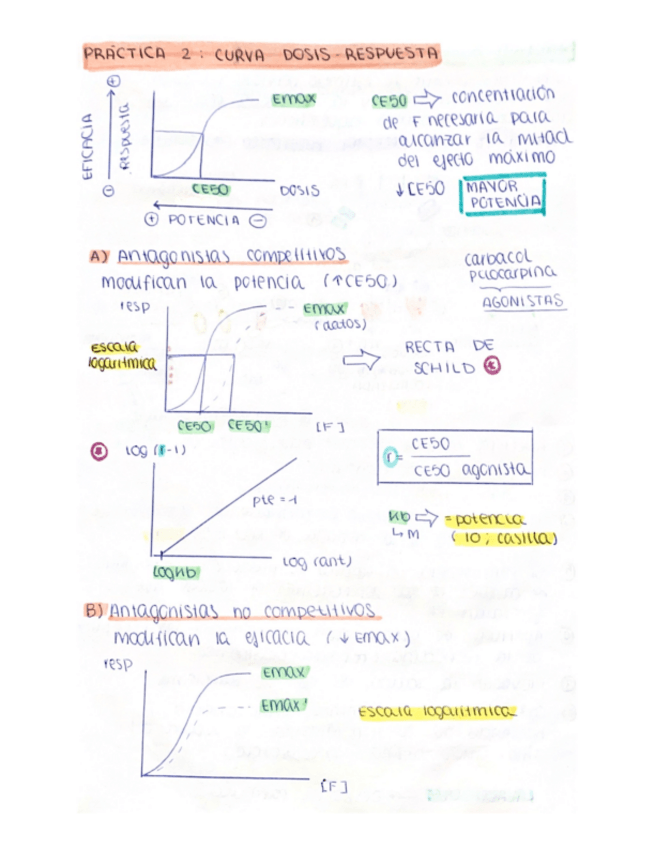 PRÁCTICA 2: CURVA DOSIS-RESPUESTA
EFICACIA
respuesta
Emax
CE50
DOSIS
POTENCIA
CE50 ⇨ concentración
de F necesaria para
alcanzar la mitad
del efecto máximo
↓CE50 MAYOR
POTENCIA
A) Antagonistas competitivos
modifican la potencia (↑CE50)
carbacol
pilocarpina
AGONISTAS
resp
Emax
(datos)
escala
logarítmica
CE50 CE50'
[F]
⇨ RECTA DE
SCHILD *
* LOG (r-1)
pte = 1
LOG Kb
LOG (ant)
r = CE50
CE50 agonista
Kb ⇨ = potencia
↳ M (10; casilla)
B) Antagonistas no competitivos
modifican la eficacia (↓ Emax)
resp
Emax
Emax'
Escala logarítmica
[F]